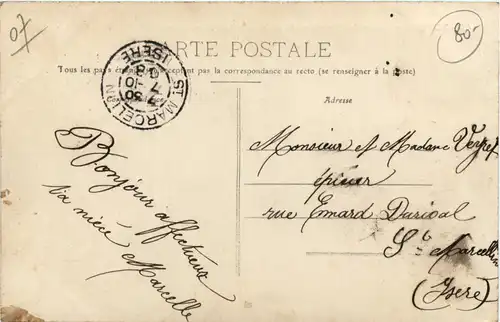 07
80-
CARTE POSTALE
Tous les pays étrangers n'acceptent pas la correspondance au recto (se renseigner à la poste)
Adresse
ST MARCELLIN
ISÈRE
7 30
7 -10
08
Bonjour affectueux
ta nièce Marcelle
Monsieur et Madame Veyret
épicier
rue Emard Durival
St Marcellin
(Isère)